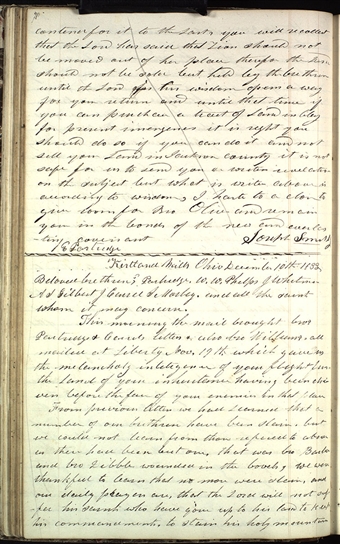 contend for it to the last, you will recollect
that the Lord has said that Zion should not
be moved out of her place therefore the Land
should not be sold but held by the brethren
until the Lord in his wisdom open a way
for you return and until that time if
you can purchase a tract of Land in Clay
for present it is right you
should do so if you can do it and not
sell you Land in Jackson county it is not
safe for us to send you a written revelation
on the subject but what is writen above is
according to wisdom, I haste to a close to
give room for Bro Oliver and remain
you in the bonds of the new and everlas-
ting Covenant
Joseph Smith
E Partridge
Kirtland Mills Ohio December 10th 1833
Beloved brethren, E Partridge, W. W. Phelps, J Whitmer
A S Gilbert, J Carrel I Morley and all the saint
whom it may concern.
This morning the mail brought bro
Partridge & Carrels letters, & also bro Wm Phelps all
mailed at Liberty Nov. 19th which gave us
the melancholy inteligence of your flight from
the Land of your inheritance having been dri-
ven before the face of your enemies in that place
From previous letters we had learned that a
number of our brethren have been slain, but
we could not learn from them refered to above
as there had been but one, that was bro Barber
and bro Dibble wounded in the bowels, we were
thankful to learn that no more were slain, and
our daily prayers are, that the Lord will not suf-
fer his saints who have gone up to his land to keep
his commandments, to stain his holy mountain